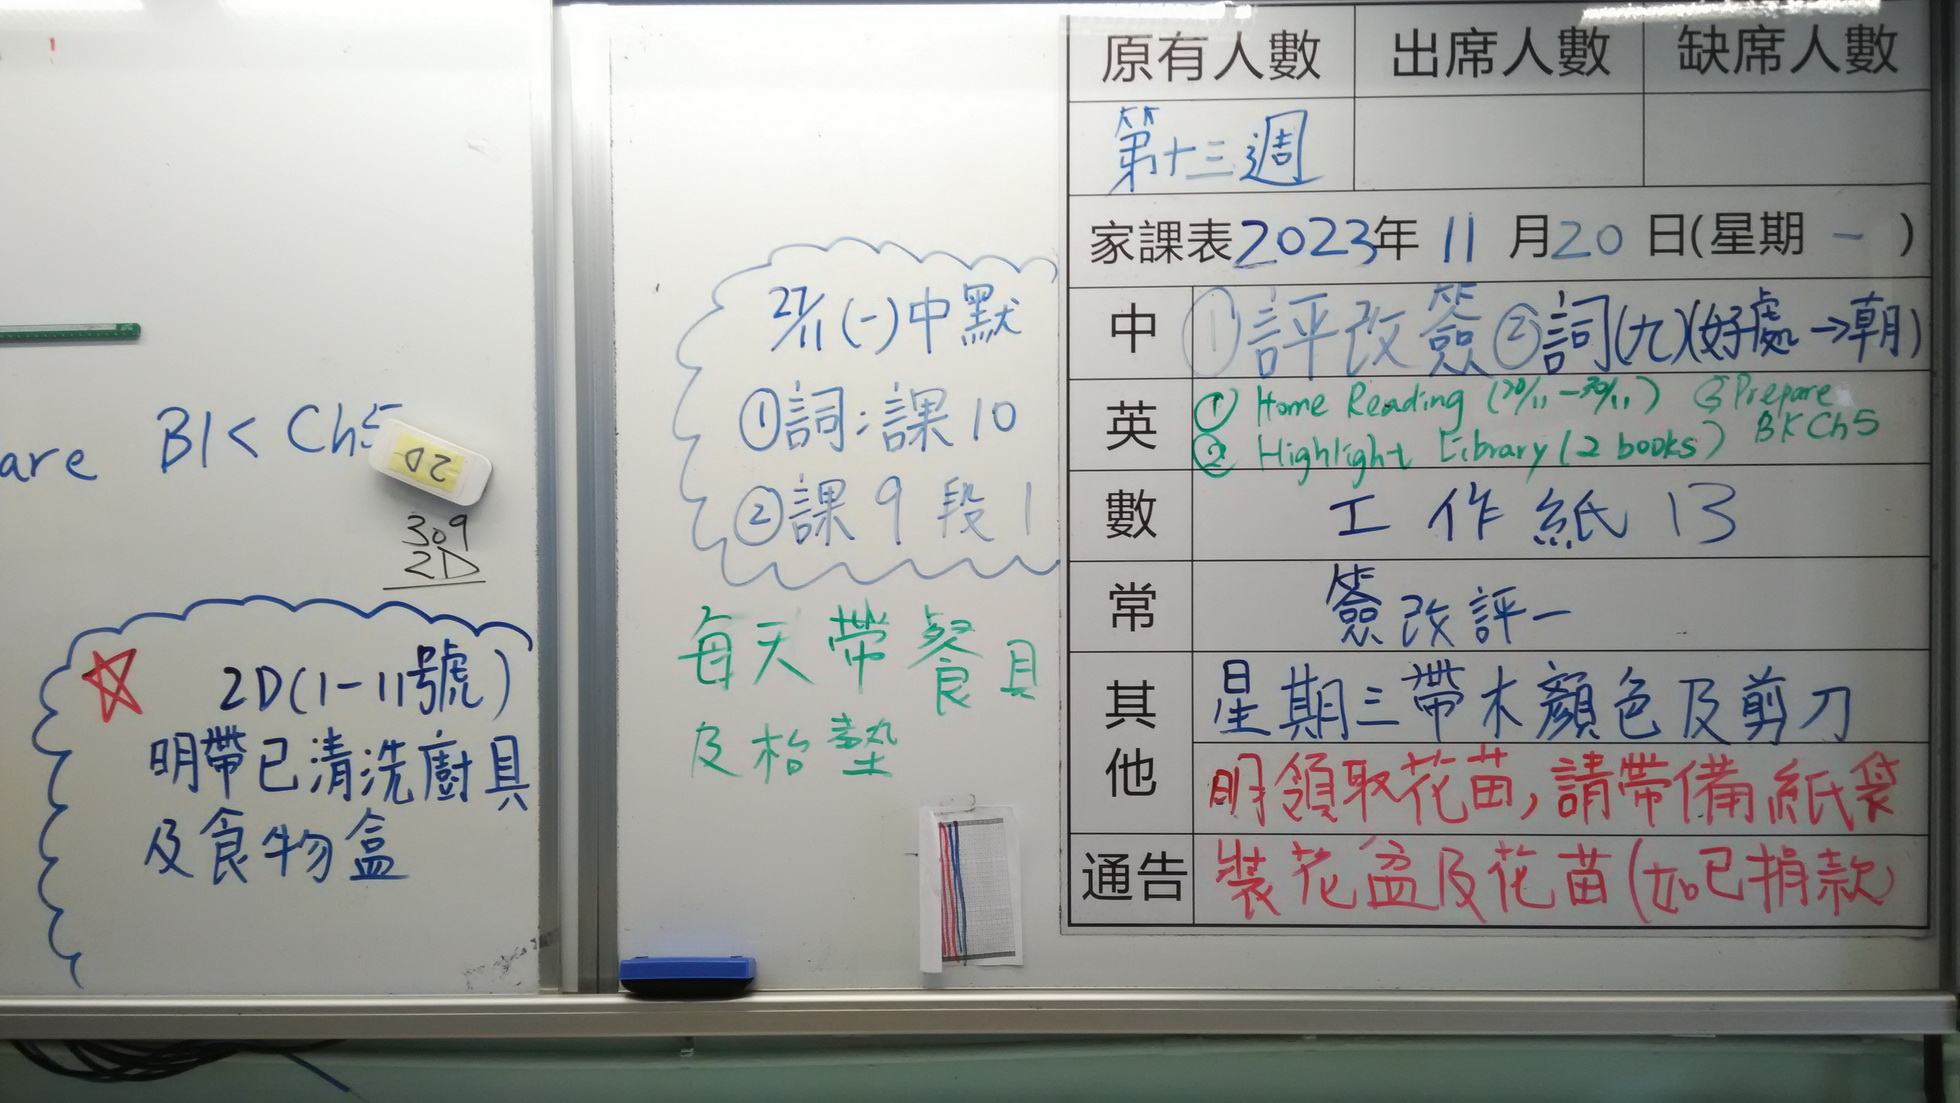 are BK Ch5
2D
309
2D
2D(1-11號)
明帶已清洗廚具
及食物盒
27/11(一)中默
①詞:課10
②課9段1
每天帶餐具
及枱墊
原有人數 出席人數 缺席人數
第十三週
家課表2023年11月20日(星期一)
中 ①評改簽②詞(九)(好處→朝)
英 ① Home Reading (20/11-30/11) ③Prepare
② Highlight Library (2 books) BK Ch5
數 工作紙13
常 簽改評一
其他 星期三帶木顏色及剪刀
明領取花苗,請帶備紙袋
通告 裝花盆及花苗(如已捐款)